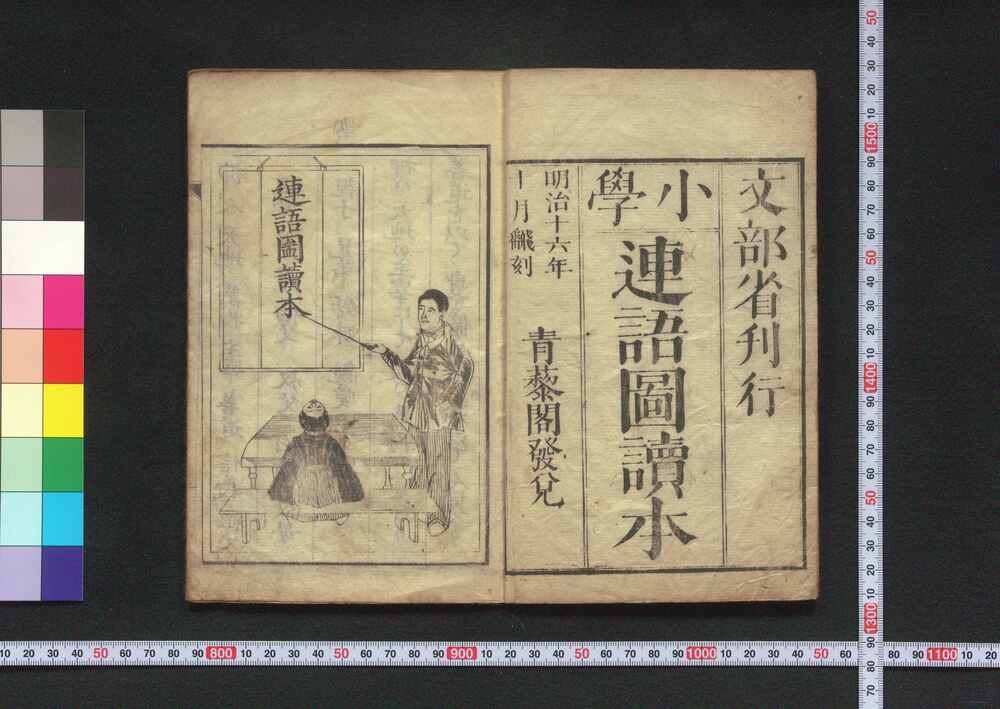 文部省刊行
小學
連語圖讀本
明治十六年
十月飜刻
青藜閣發兌
連語圖讀本
50 40 30 20 10 1500 90 80 70 60 50 40 30 20 10 1400 90 80 70 60 50 40 30 20 10 1300 90 80 70
10 20 30 40 50 60 70 80 90 800 10 20 30 40 50 60 70 80 90 900 10 20 30 40 50 60 70 80 90 1000 10 20 30 40 50 60 80 90 1100 10 20